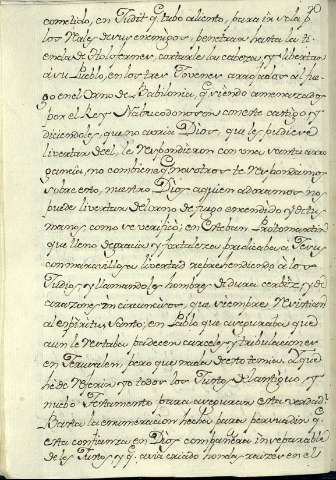 cometido, en Judit q. tubo aliento, para ir sola p.
los Reales de sus enemigos, penetrar hasta la ti-
enda de Holofernes, cortarle la cabeza, y libertar
á su Pueblo, en los tres Jovenes arrojados al fue-
go en el Orno de Babilonia, q. viendo amenazados
por el Rey Nabucodonosor con este castigo y
diciendoles, que no avria Dios, que les pudiera
livertar de el, le Respondieron con una santa arro-
gancia, no combiene q. nosotros te Respondamos
sobre esto, nuestro Dios aquien adoramos nos
puede livertar del orno de fuego encendido, y de tus
manos, como se verificó; en Esteban Protomartir
que lleno de gracia, y fortaleza predicaba á Jesus
con maravillosa libertad reprehendiendo á los
Judios, y llamandoles hombres de dura cerbiz, y de
corazones incircuncisos, que siempre Resistian
al espiritu Santo, en Pablo que aseguraba que
aun le Restaba padecer carceles, y tribulaciones
en Jerusalen, pero que nada de esto temia. Y que
he de Referir yo todos los Justos del antiguo, y
nuebo Testamento para asegurar esta verdad?
Basta la enumeracion hecha para persuadir q.
esta confianza en Dios es compañera inseparable
de los Justos, y q. avia criado hondas raizes en el